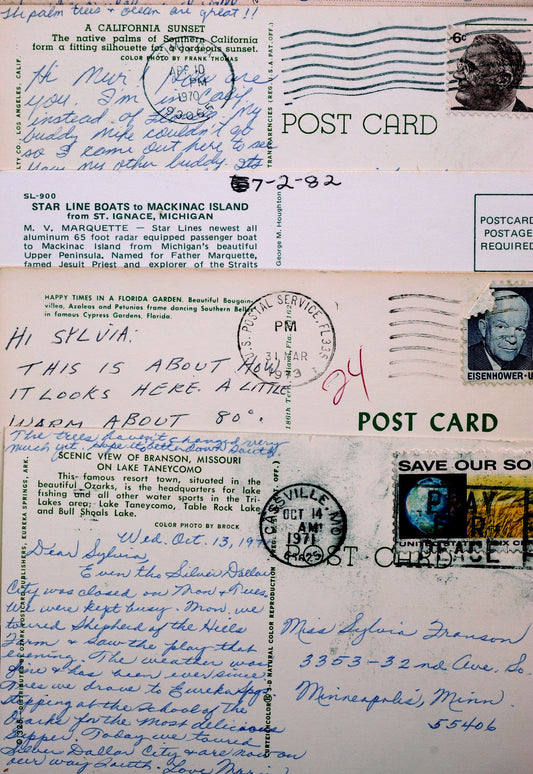 palm trees + ocean are great!!
A CALIFORNIA SUNSET
The native palms of Southern California
form a fitting silhouette for a gorgeous sunset.
COLOR PHOTO BY FRANK THOMAS
Hi
you. I'm in Calif
instead of my
buddy Mike couldn't go
so I came out here to see
my other buddy. Its
APR 10
PM
1970
6c
POST CARD
LOS ANGELES, CALIF.
TRANSPARENCIES (REG. U.S.A. PAT. OFF.)
7-2-82
SL-900
STAR LINE BOATS to MACKINAC ISLAND
from ST. IGNACE, MICHIGAN
M. V. MARQUETTE — Star Lines newest all
aluminum 65 foot radar equipped passenger boat
to Mackinac Island from Michigan's beautiful
Upper Peninsula. Named for Father Marquette,
famed Jesuit Priest and explorer of the Straits
George M. Houghton
POSTCARD
POSTAGE
REQUIRED
HAPPY TIMES IN A FLORIDA GARDEN. Beautiful Bougain-
villea, Azaleas and Petunias frame dancing Southern Belles
in famous Cypress Gardens, Florida.
HI SYLVIA:
THIS IS ABOUT HOW
IT LOOKS HERE. A LITTLE
WARM ABOUT 80°.
U.S. POSTAL SERVICE, FL 335
PM
31 MAR
1973
24
EISENHOWER-U
POST CARD
The trees haven't changed very
much yet. Hope it's better down South.
SCENIC VIEW OF BRANSON, MISSOURI
ON LAKE TANEYCOMO
This famous resort town, situated in the
beautiful Ozarks, is the headquarters for lake
fishing and all other water sports in the Tri-
Lakes area: Lake Taneycomo, Table Rock Lake
and Bull Shoals Lake.
COLOR PHOTO BY BROCK
Wed. Oct. 13, 197
Dear Sylvia,
Even tho Silver Dollar
City was closed on Mon & Tues.
we were kept busy. Mon. we
toured Shepherd of the Hills
Farm & saw the play that
evening. The weather was
fine & has been ever since.
Tues we drove to Eureka Spgs
stopping at the School of the
Ozarks for the most delicious
supper. Today we toured
Silver Dollar City & are now on
our way South. Love
DISTRIBUTED BY OZARK POSTCARD PUBLISHERS, EUREKA SPRINGS, ARK.
CURTEICHCOLOR® 3-D NATURAL COLOR REPRODUCTION
CASSVILLE, MO
OCT 14
AM
1971
65625
SAVE OUR SO
UNITED STATES SIX CE
PRAY
PEACE
POST CARD
Miss Sylvia Franson
3353-32nd Ave. So.
Minneapolis, Minn.
55406